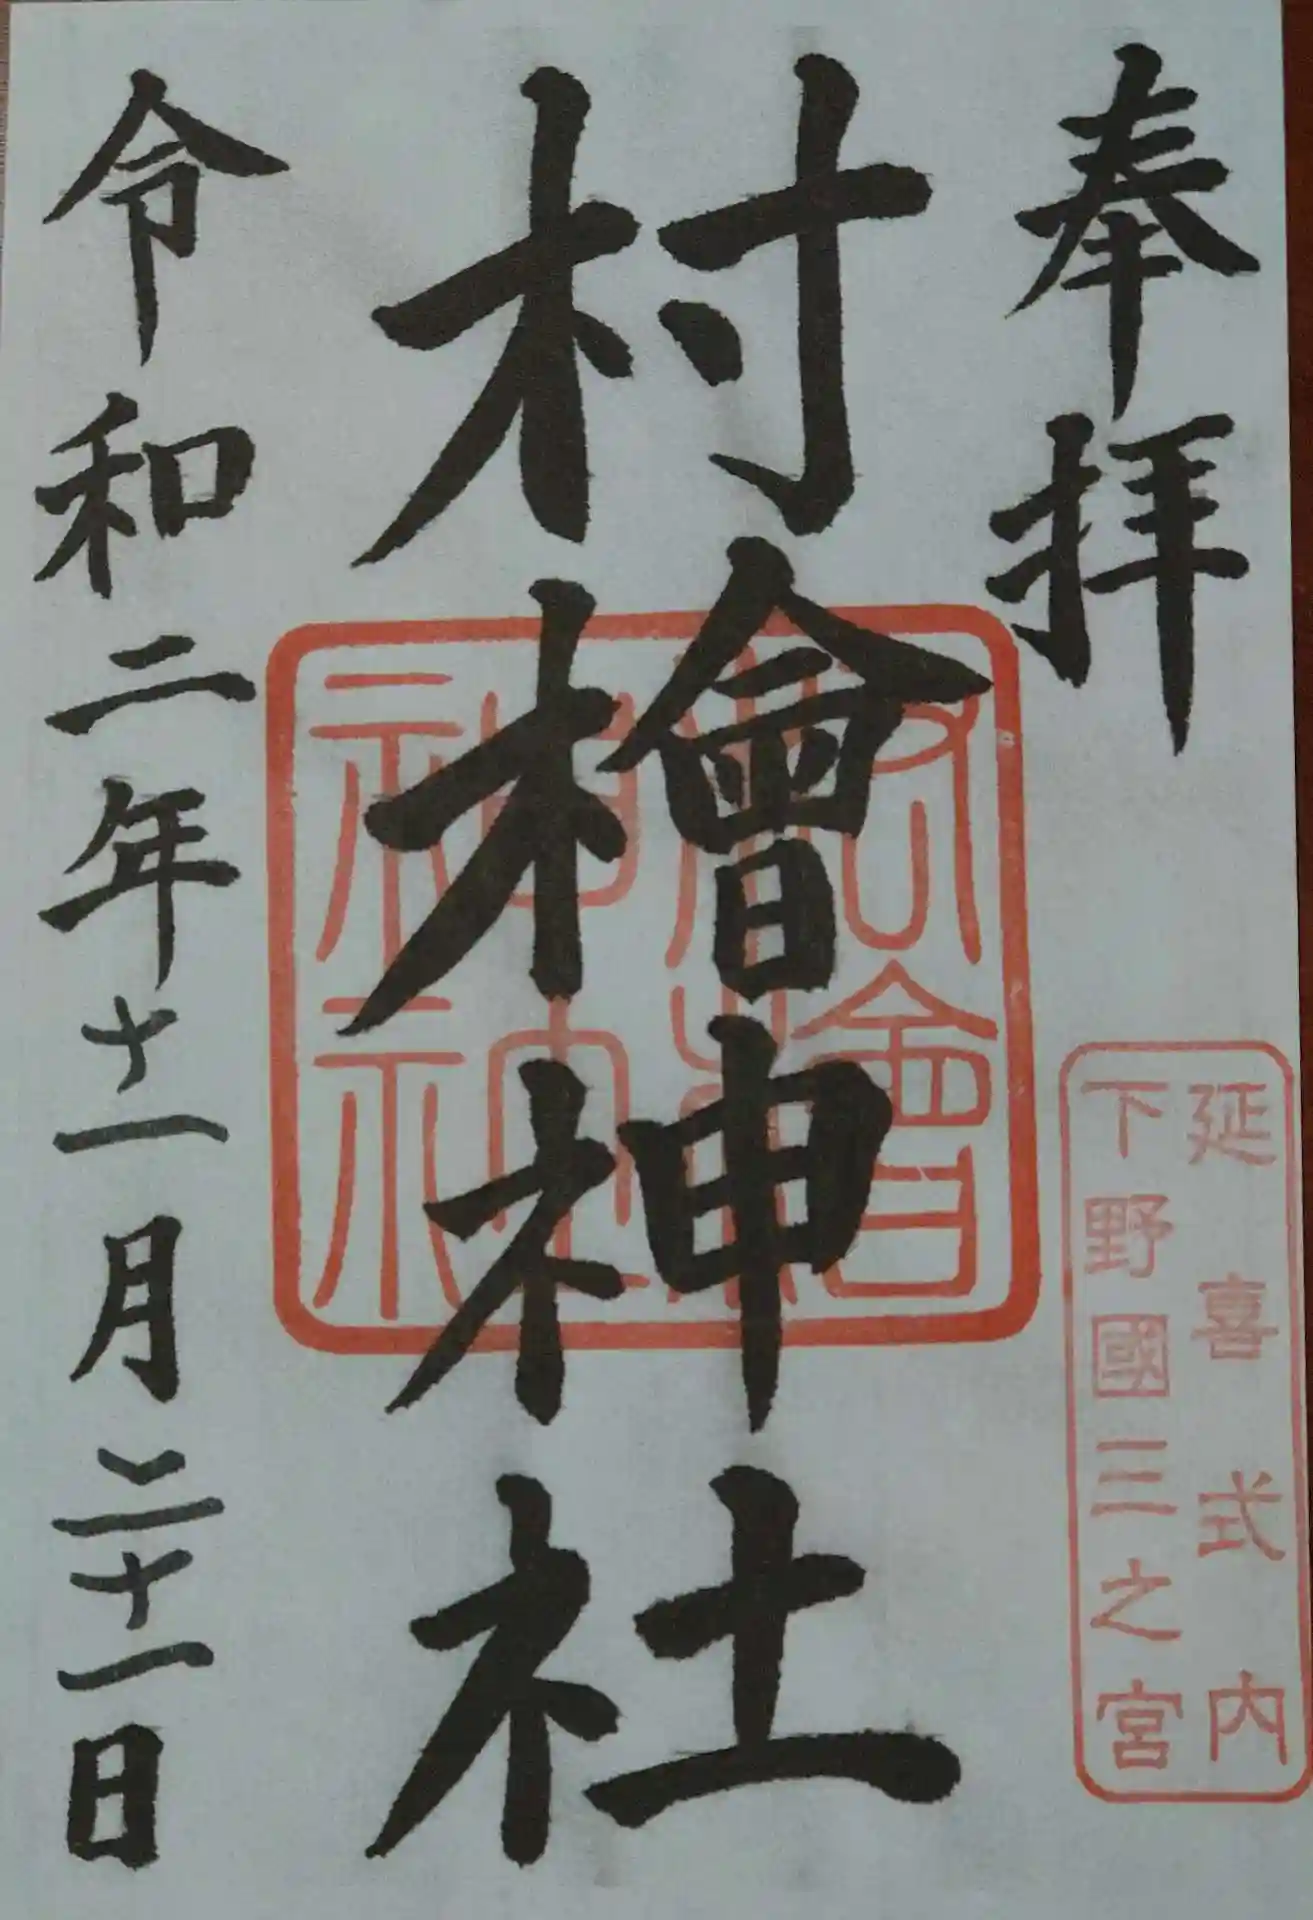 奉拝
延喜式内
下野國三之宮
村檜神社
村檜神社
令和二年十一月二十一日